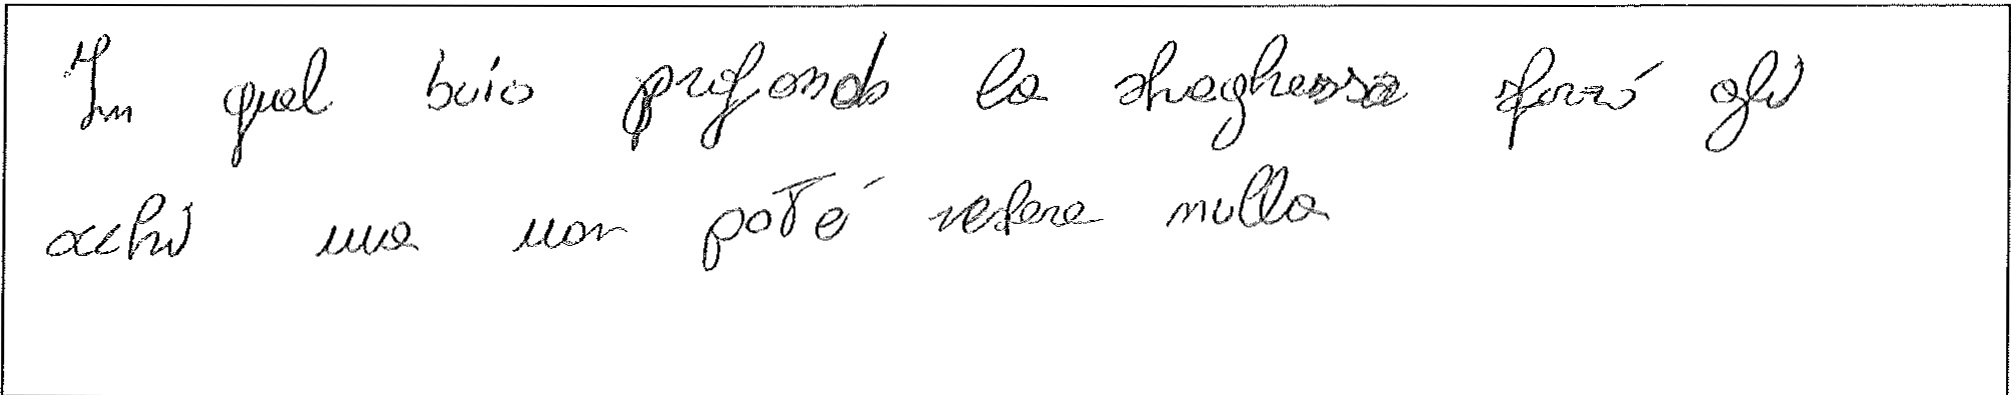 In quel buio profondo la streghessa sforzó gli
occhi ma non poté vedere nulla